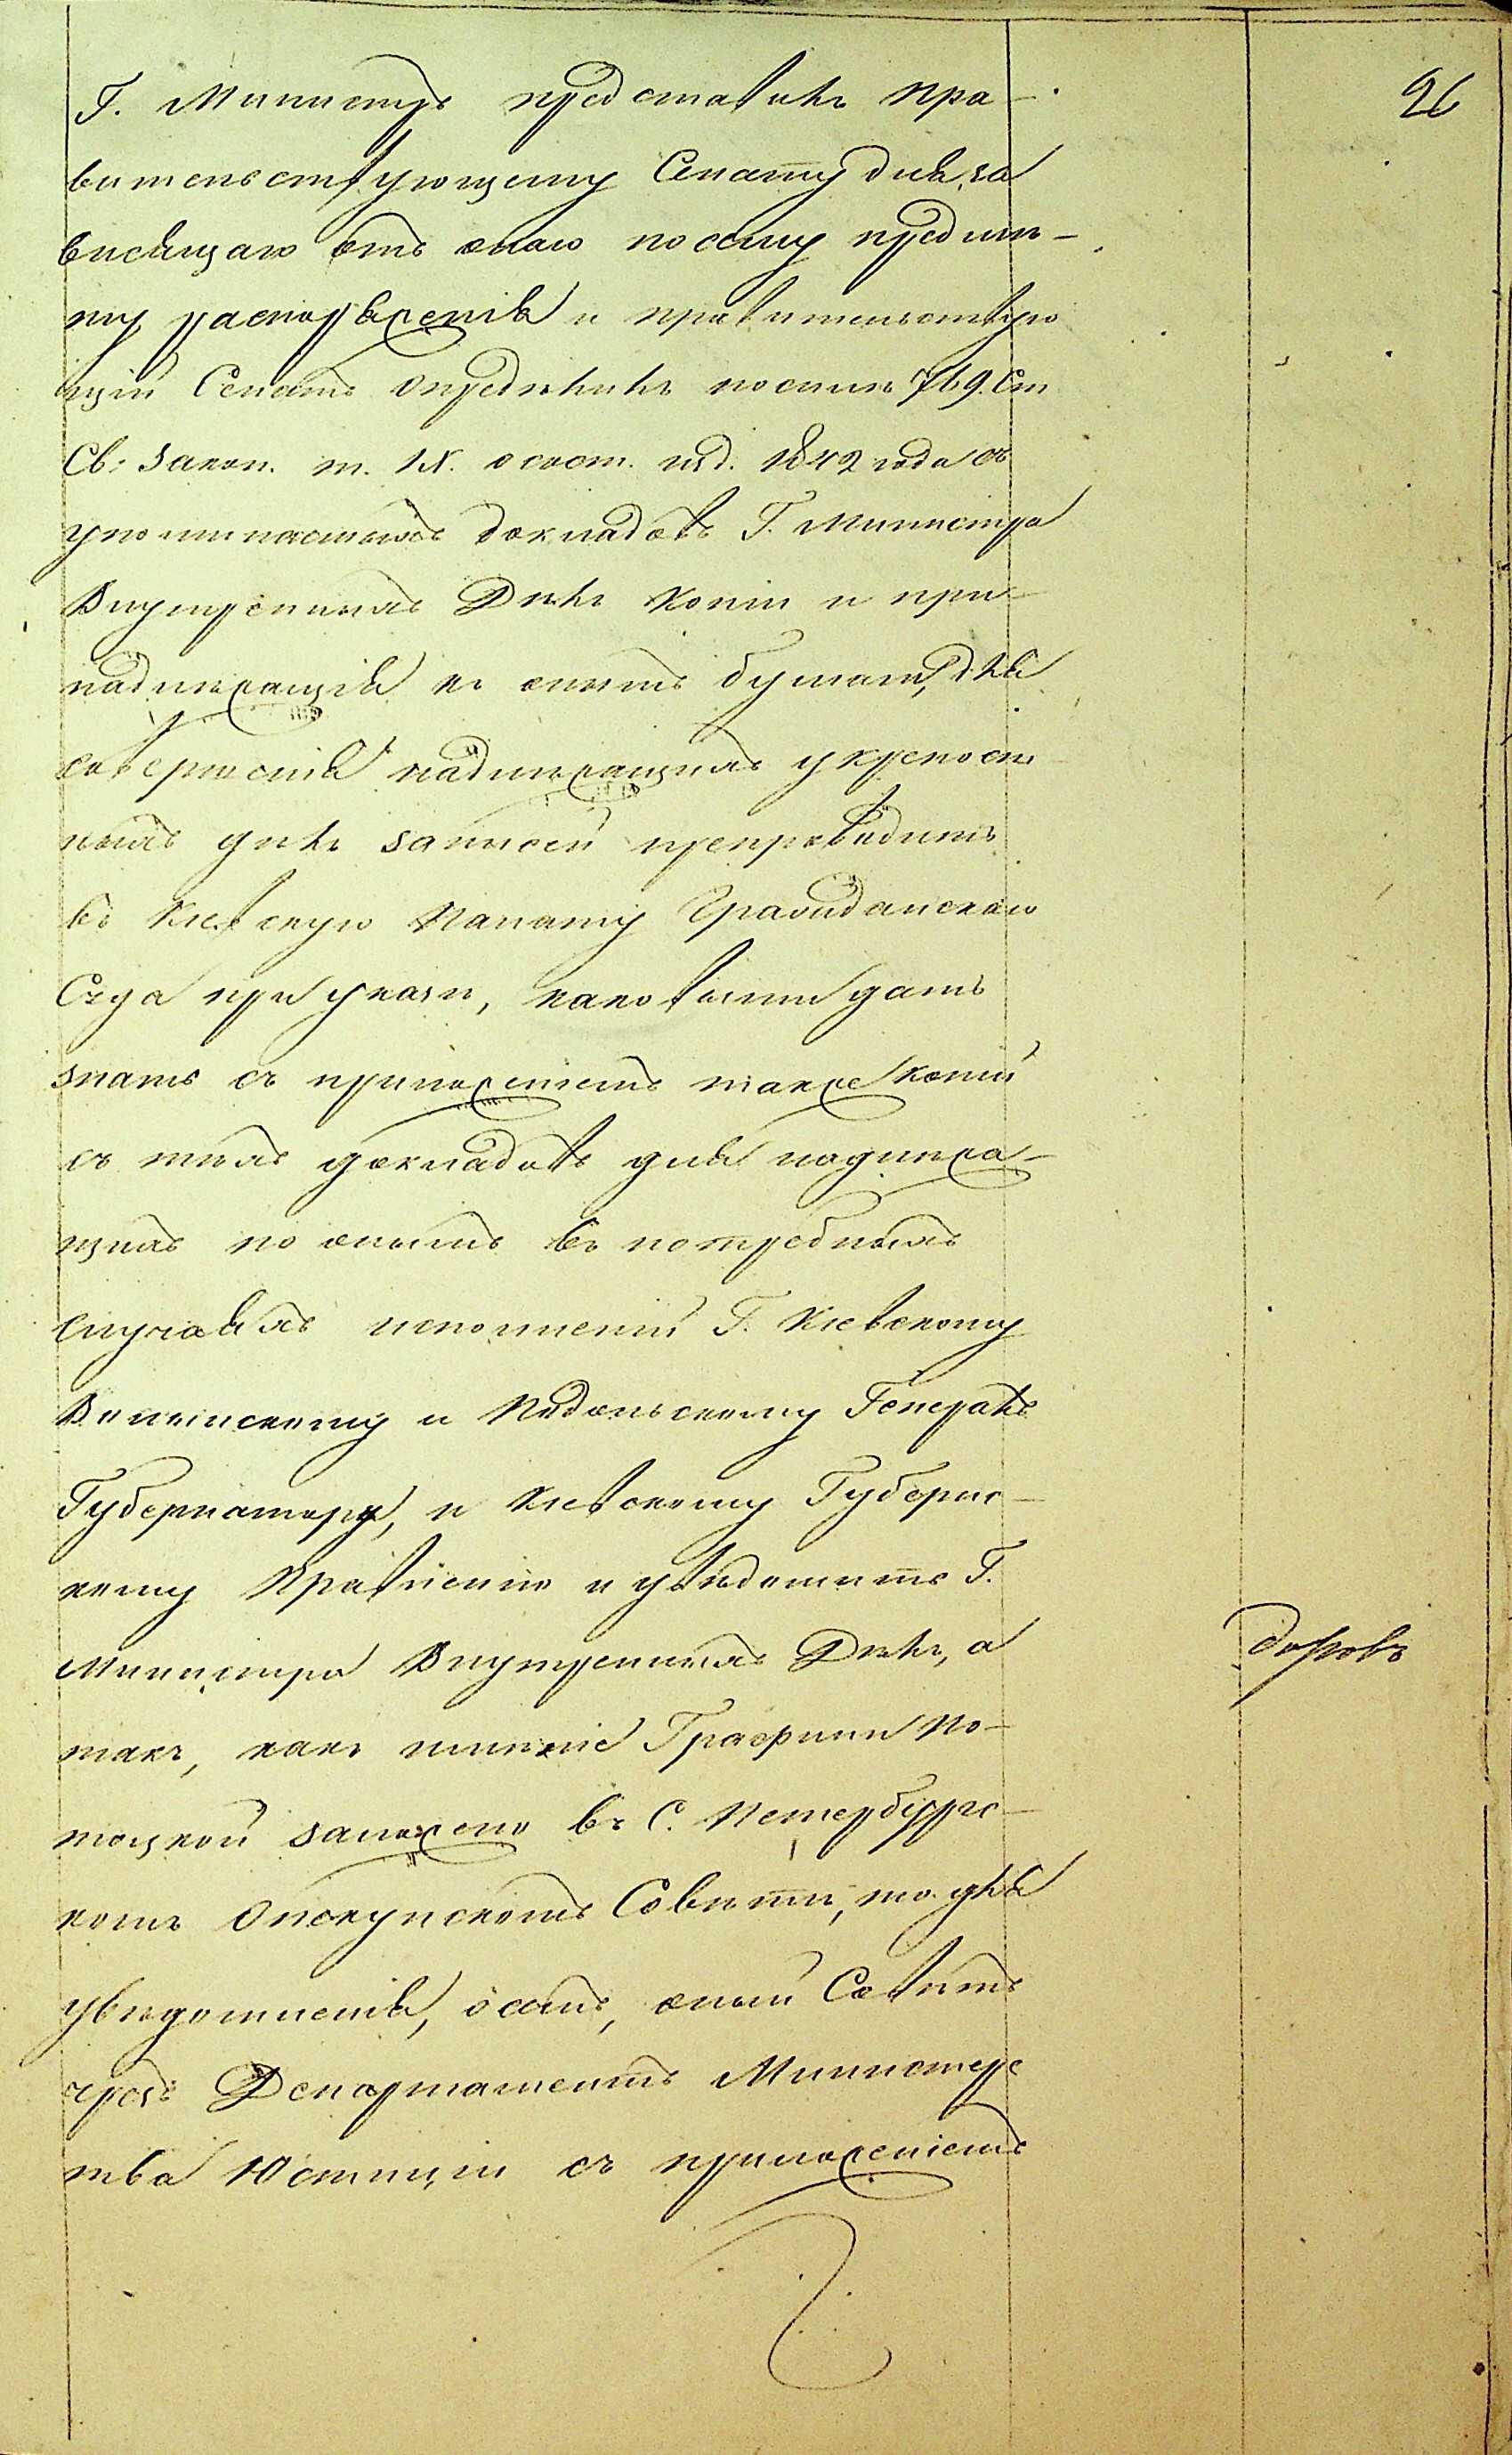 26
Г. Министръ представилъ Пра-
вительствующему Сенату для за
висящаго отъ онаго по сему предме-
ту распоряженія и правительствую
щій Сенатъ опредѣлилъ по силѣ 769. Ст
Св: Закон. т. IX. о сост. изд. 1842 года съ
упоминаемыхъ докладовъ Г. Министра
Внутреннихъ Дѣлъ копіи и при
надлежащія къ онымъ бумаги, для
совершенія надлежащихъ укрепост
ныхъ дѣлъ записей препроводить
въ Кіевскую Палату Гражданскаго
Суда при указѣ, каковыми дать
знать съ приложеніемъ также копій
съ тѣхъ докладовъ для надлежа-
щихъ по онымъ въ потребныхъ
случаяхъ исполненій Г. Кіевскому
Волынскому и Подольскому Генералъ
Губернатору, и Кіевскому Губернс-
кому Правленію и увѣдомить Г.
Министра Внутреннихъ Дѣлъ, а
такъ, какъ имѣніе Графини По-
тоцкой заложено въ С. Петербургс-
комъ Опекунскомъ Совѣтѣ, то для
увѣдомленія, о семъ, оный Совѣтъ
чрезъ Департаментъ Министерс
тва Юстиціи съ приложеніемъ